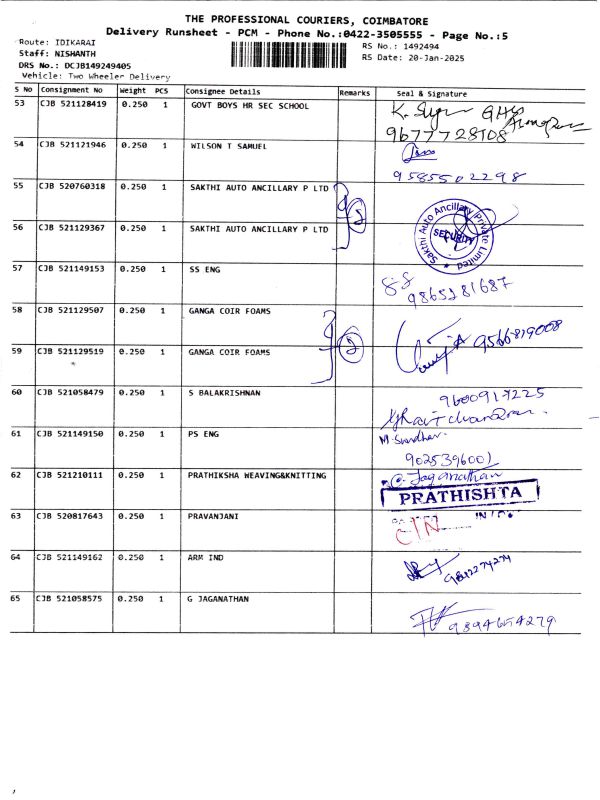 THE PROFESSIONAL COURIERS, COIMBATORE
Delivery Runsheet - PCM - Phone No.:0422-3505555 - Page No.:5
Route: IDIKARAI
RS No.: 1492494
Staff: NISHANTH
RS Date: 20-Jan-2025
DRS No.: DCJB149249405
Vehicle: Two Wheeler Delivery
S No Consignment No Weight PCS Consignee Details Remarks Seal & Signature
53 CJB 521128419 0.250 1 GOVT BOYS HR SEC SCHOOL
9677728708
54 CJB 521121946 0.250 1 WILSON T SAMUEL
9585502298
55 CJB 520760318 0.250 1 SAKTHI AUTO ANCILLARY P LTD
56 CJB 521129367 0.250 1 SAKTHI AUTO ANCILLARY P LTD
Sakthi Auto Ancillary Private Limited
SECURITY
57 CJB 521149153 0.250 1 SS ENG
9865281687
58 CJB 521129507 0.250 1 GANGA COIR FOAMS
9566819008
59 CJB 521129519 0.250 1 GANGA COIR FOAMS
60 CJB 521058479 0.250 1 S BALAKRISHNAN
9600917225
61 CJB 521149150 0.250 1 PS ENG
9025396001
62 CJB 521210111 0.250 1 PRATHIKSHA WEAVING&KNITTING
PRATHISHTA
63 CJB 520817643 0.250 1 PRAVANJANI
64 CJB 521149162 0.250 1 ARM IND
9842274274
65 CJB 521058575 0.250 1 G JAGANATHAN
9894654279